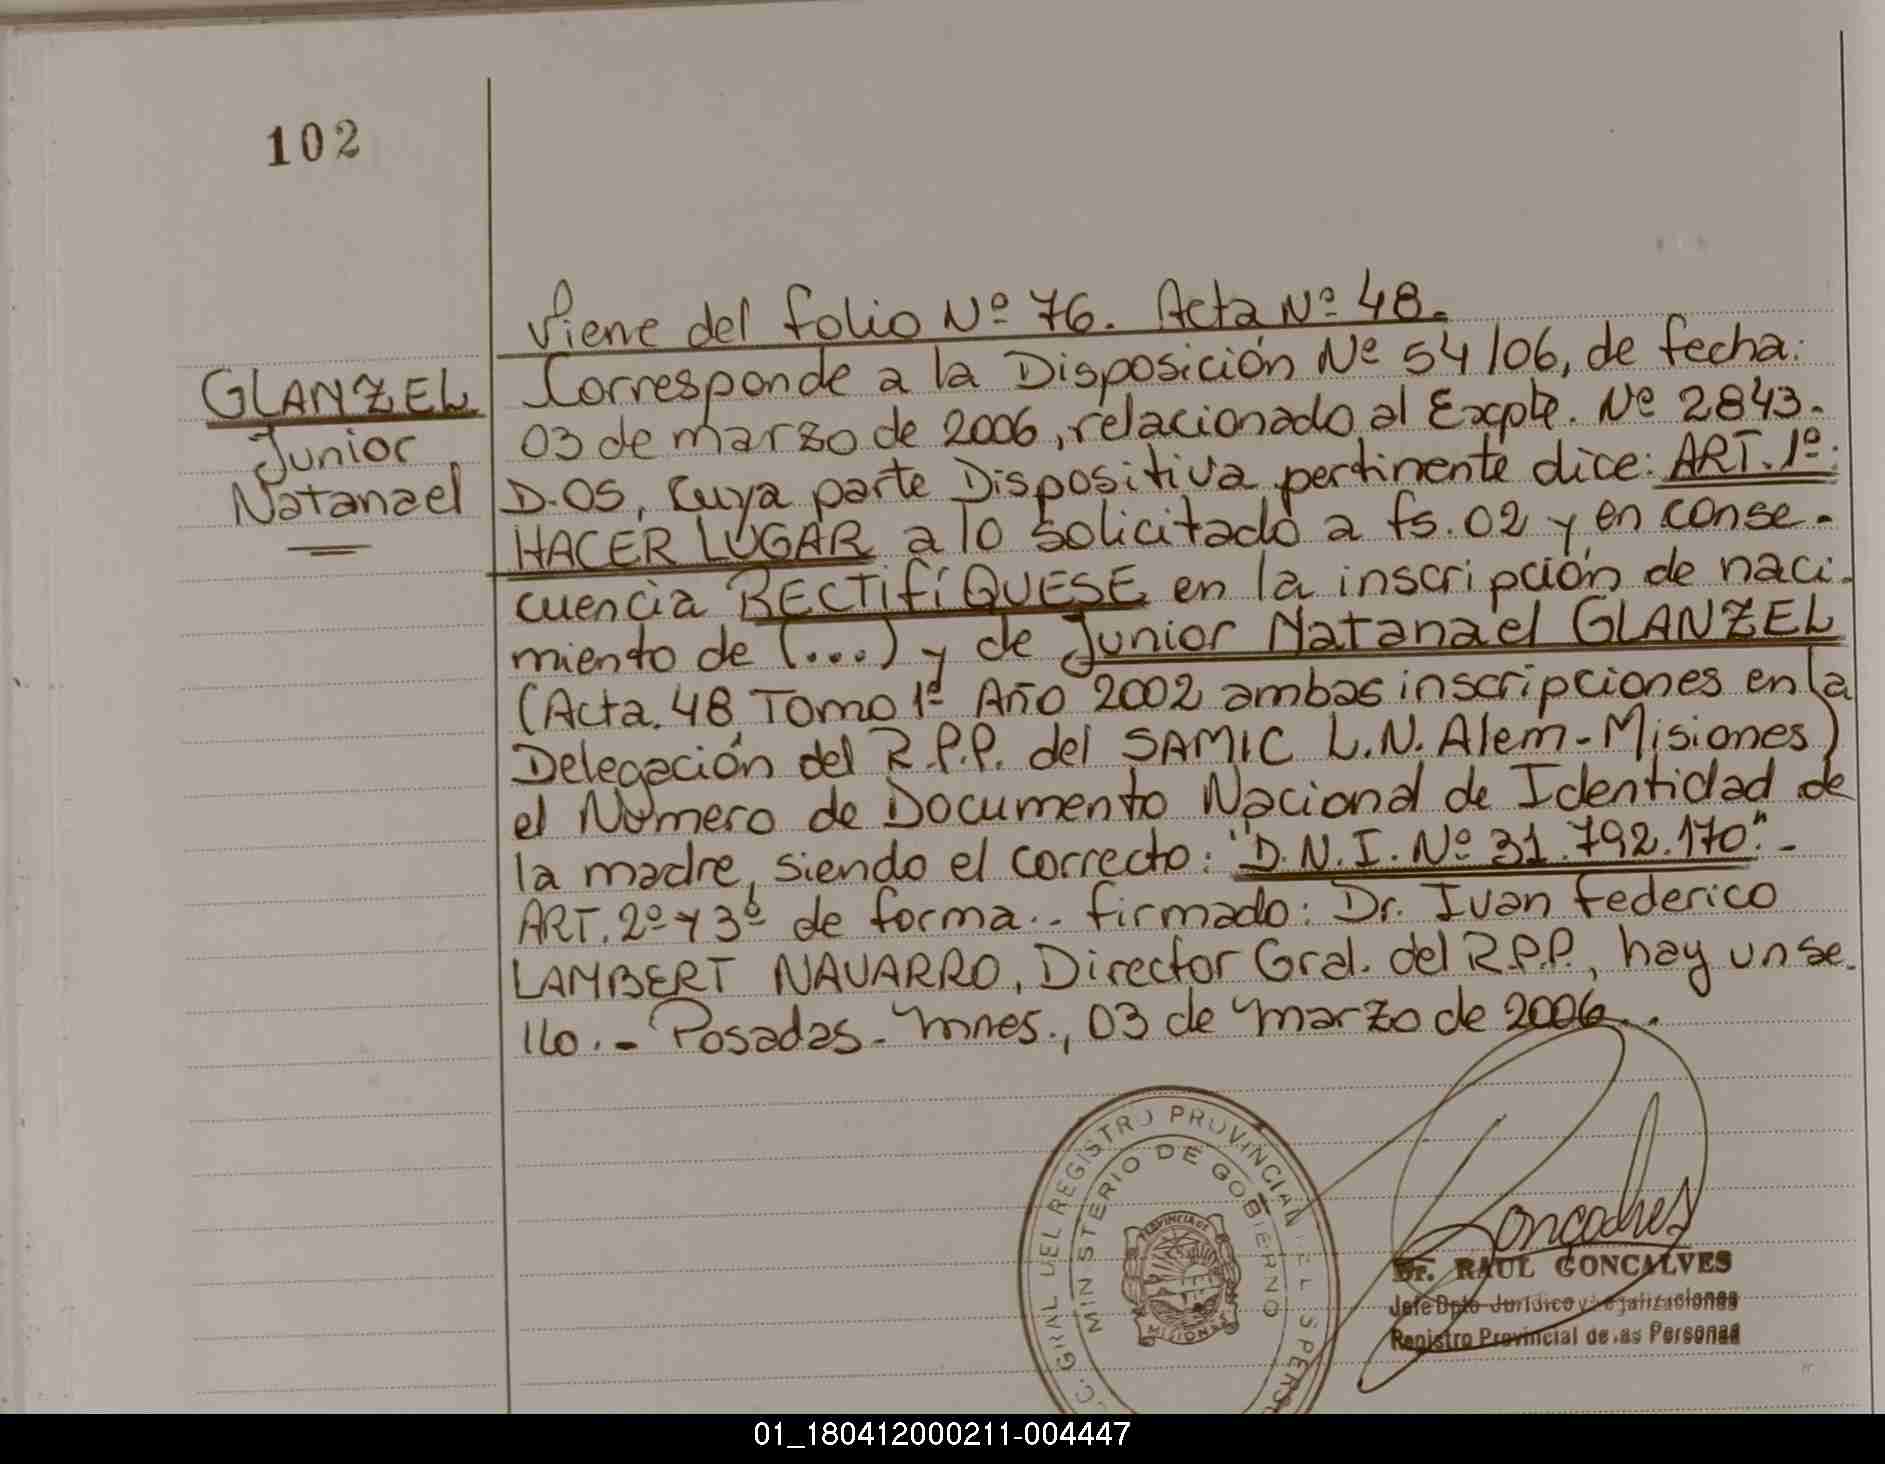 102
Viene del folio Nº 76. Acta Nº 48.
GLANZEL
Junior
Natanael
Corresponde a la Disposición Nº 54/06, de fecha:
03 de marzo de 2006, relacionado al Expte. Nº 2843-
D-05, cuya parte Dispositiva pertinente dice: ART. 1º:
HACER LUGAR a lo solicitado a fs. 02 y en conse-
cuencia RECTIFÍQUESE en la inscripción de naci-
miento de (...) y de Junior Natanael GLANZEL
(Acta. 48 Tomo 1º Año 2002 ambas inscripciones en la
Delegación del R.P.P. del SAMIC L.N. Alem-Misiones)
el Número de Documento Nacional de Identidad de
la madre, siendo el correcto: "D.N.I. Nº 31.792.170".-
ART. 2º y 3º de forma.- firmado: Dr. Ivan Federico
LAMBERT NAVARRO, Director Gral. del R.P.P., hay un se-
llo.- Posadas- Mnes., 03 de Marzo de 2006..
GRAL DEL REGISTRO PROVINCIAL DE LAS PERSO
MINISTERIO DE GOBIERNO
PROVINCIA DE
MISIONES
Goncalves
Dr. RAUL GONCALVES
Jefe Dpto Jurídico y Legalizaciones
Registro Provincial de las Personas
01_180412000211-004447